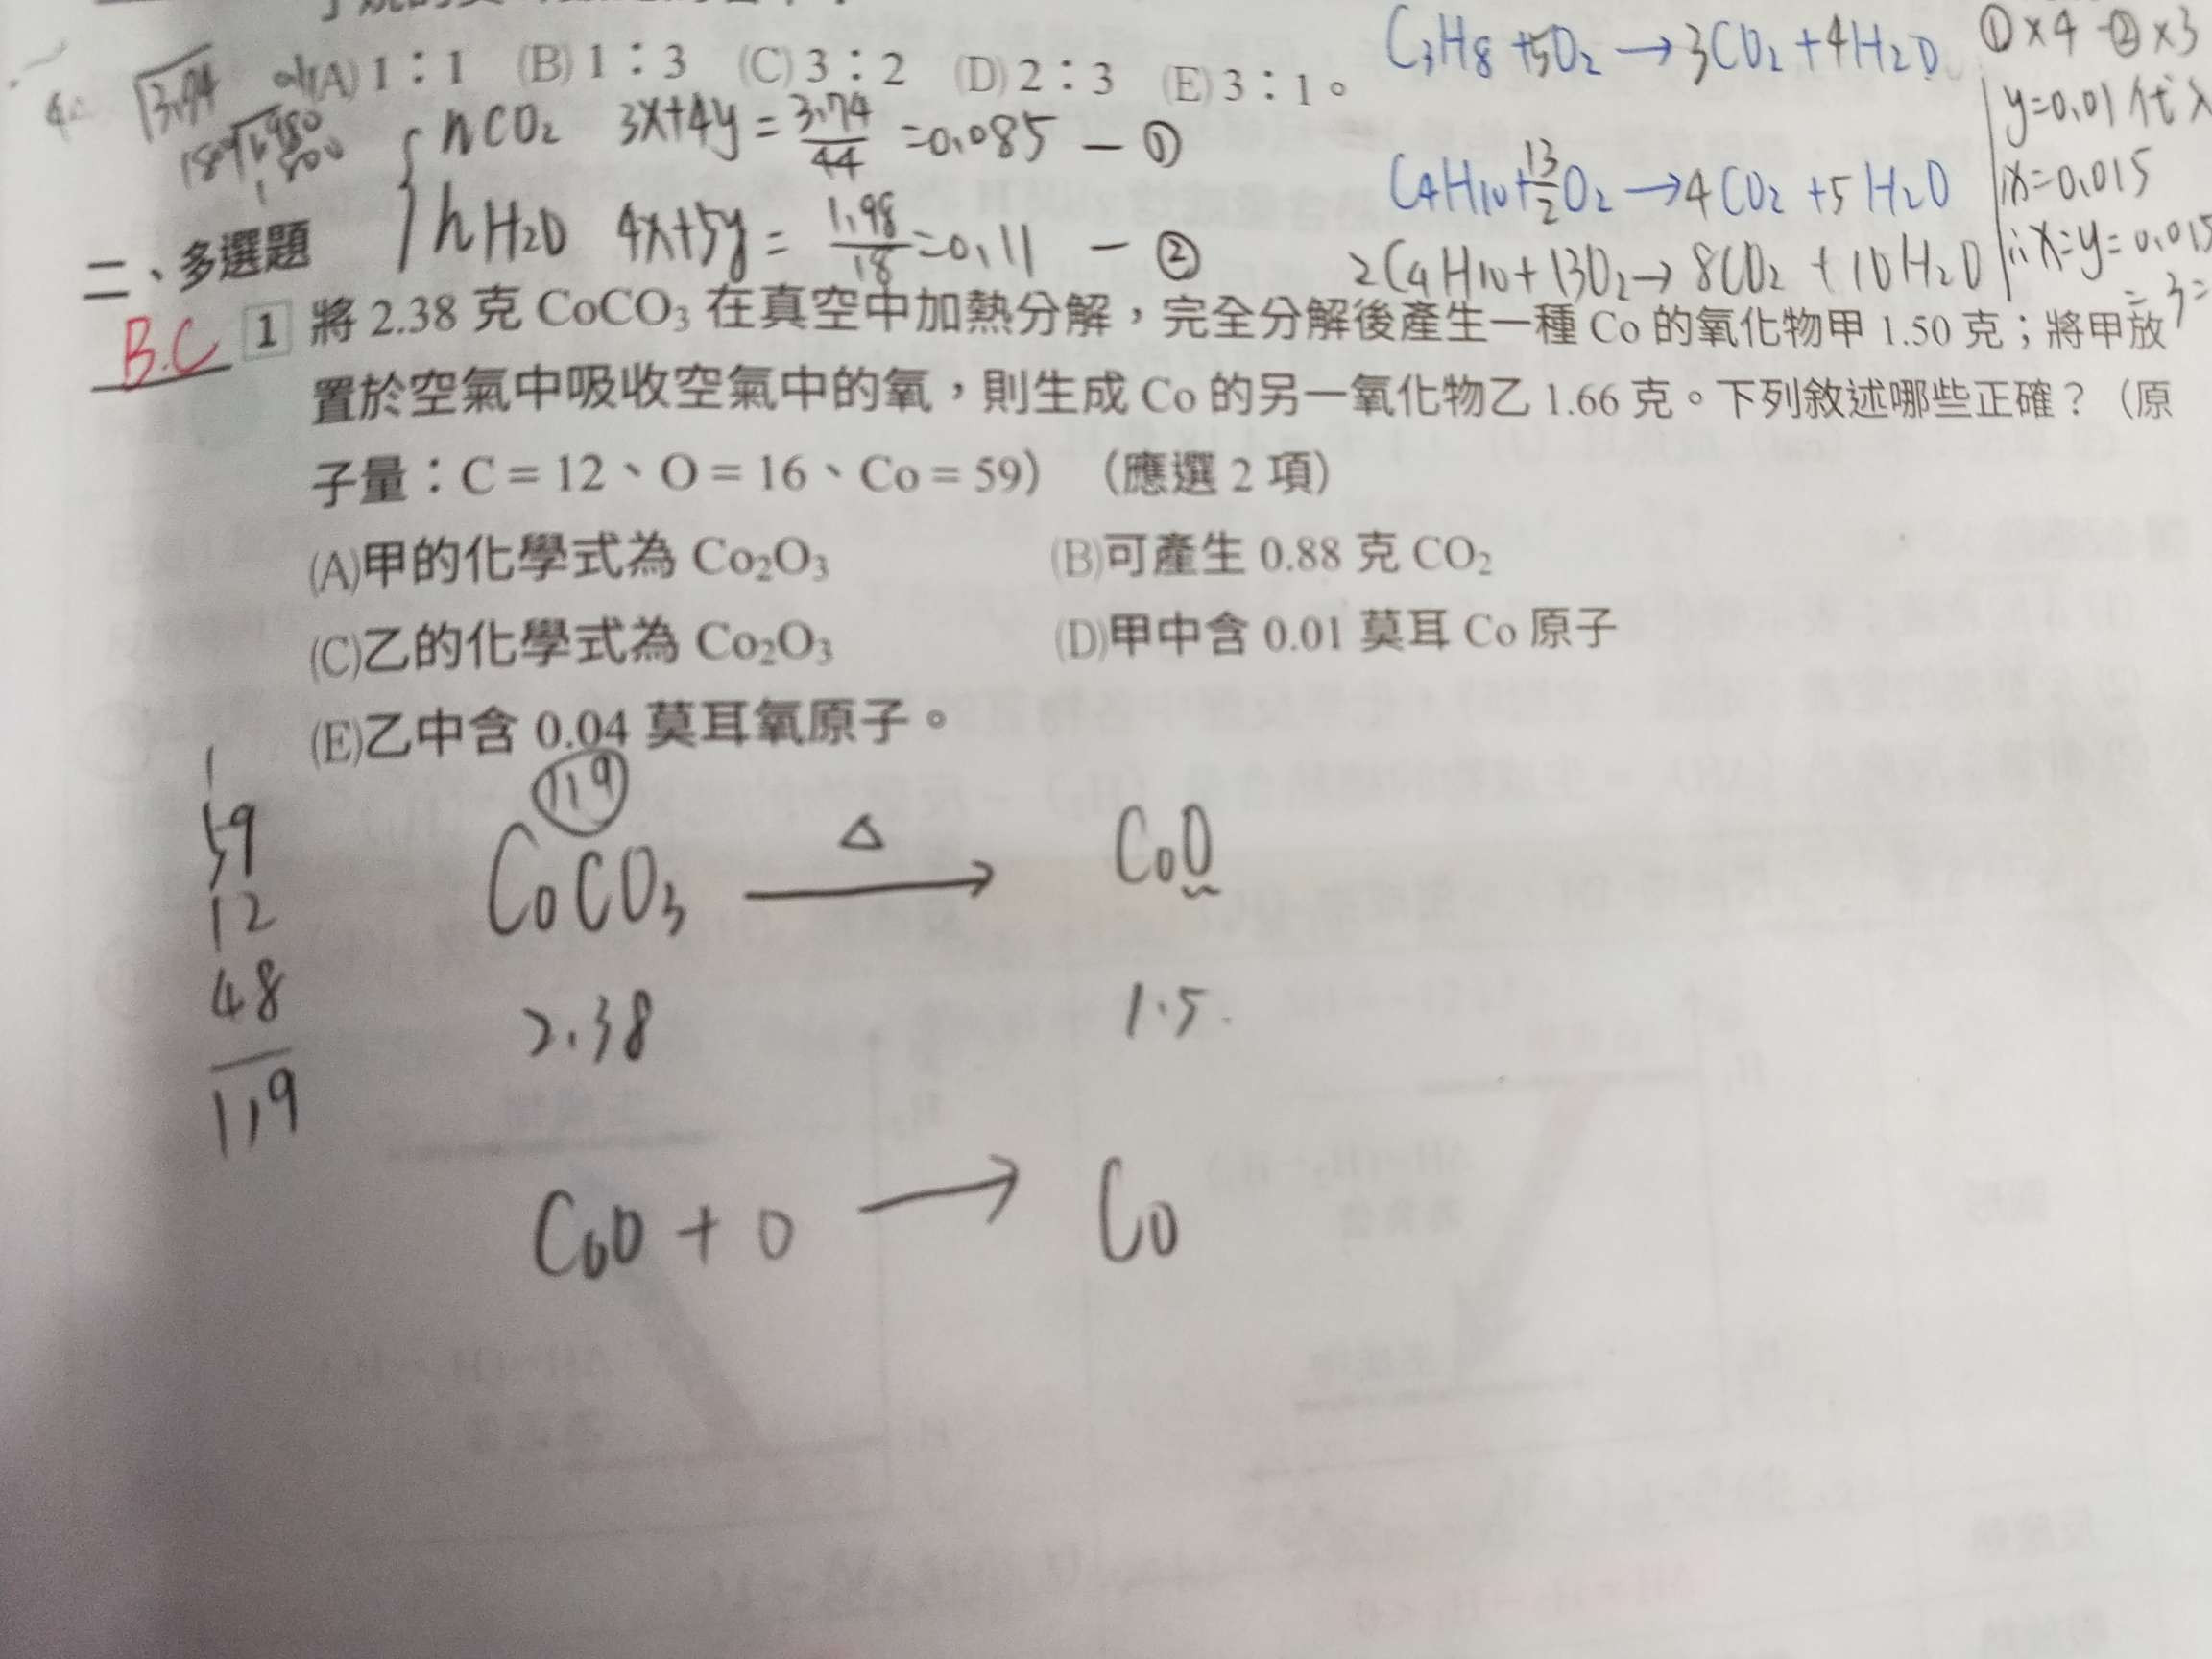 (A) 1：1 (B) 1：3 (C) 3：2 (D) 2：3 (E) 3：1。
C₃H₈ + 5O₂ → 3CO₂ + 4H₂O
①×4 - ②×3
y=0.01 代入
x=0.015
3.74
nCO₂ 3x+4y = 3.74/44 = 0.085 — ①
C₄H₁₀ + 13/2 O₂ → 4CO₂ + 5H₂O
nH₂O 4x+5y = 1.98/18 = 0.11 — ②
2C₄H₁₀ + 13O₂ → 8CO₂ + 10H₂O
∴ x:y = 0.015
二、多選題
B.C 1 將 2.38 克 CoCO₃ 在真空中加熱分解，完全分解後產生一種 Co 的氧化物甲 1.50 克；將甲放
置於空氣中吸收空氣中的氧，則生成 Co 的另一氧化物乙 1.66 克。下列敘述哪些正確？（原
子量：C = 12、O = 16、Co = 59）（應選 2 項）
(A)甲的化學式為 Co₂O₃ (B)可產生 0.88 克 CO₂
(C)乙的化學式為 Co₂O₃ (D)甲中含 0.01 莫耳 Co 原子
(E)乙中含 0.04 莫耳氧原子。
1
59
12
48
119
119
CoCO₃ —△→ CoO
2.38 1.5
CoO + O → Co